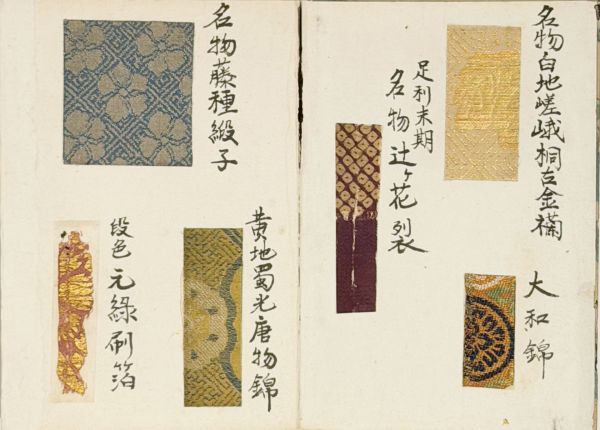 名物白地嵯峨桐古金襴
足利末期
名物辻ヶ花裂
大和錦
名物藤種緞子
黄地蜀光唐物錦
段色元綠刷箔